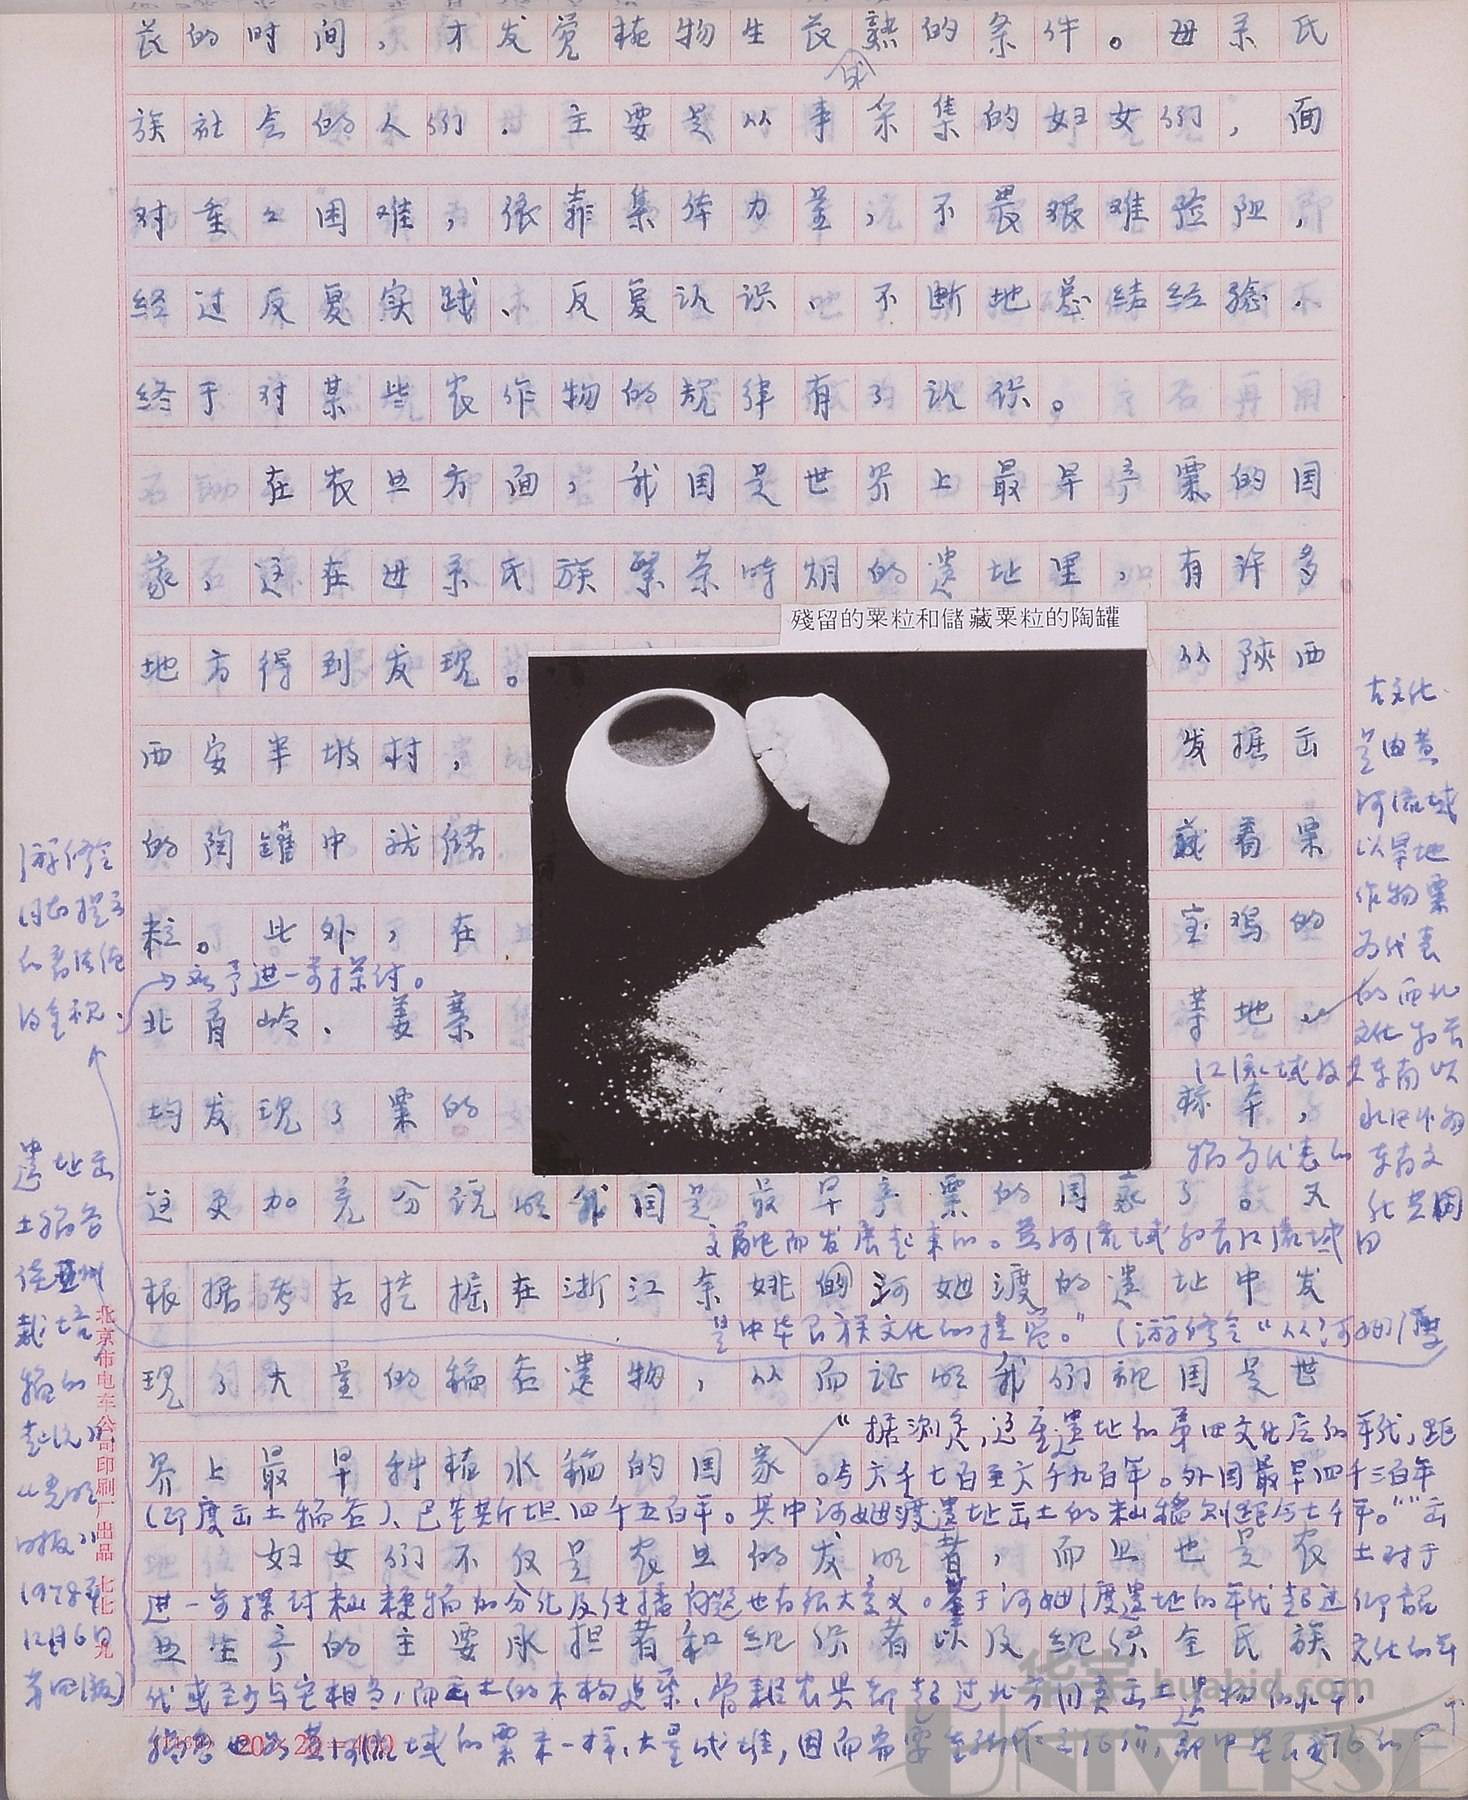 长的时间，才发觉植物生长成熟的条件。母系氏
族社会的人们，主要是从事采集的妇女们，面
对重々困难，依靠集体力量，不畏艰难险阻，
经过反复实践、反复认识、不断地总结经验，
终于对某些农作物的规律有了认识。
在农业方面，我国是世界上最早产粟的国
家，这在母系氏族繁荣时期的遗址里，有许多
殘留的粟粒和儲藏粟粒的陶罐
地方得到发现。从陕西
西安半坡村，发掘出
的陶罐中就储藏着粟
粒。此外，在宝鸡的
北首岭、姜寨等地，
均发现了粟的标本，
这更加充分说明我国是最早产粟的国家了。又
根据考古挖掘在浙江余姚的河姆渡的遗址中发
现了大量的稻谷遗物，从而证明我们祖国是世
界上最早种植水稻的国家
妇女们不仅是农业的发明者，而且也是农
业生产的主要承担者和组织者以及组织全氏族
“据测定，这座遗址的第四文化层的年代，距
今六千七百至六千九百年。外国最早四千三百年
（印度出土稻谷）、巴基斯坦四千五百年。其中河姆渡遗址出土的籼稻则距今七千年。”“出
土对于
进一步探讨籼粳稻的分化及传播问题也有很大意义。鉴于河姆渡遗址的年代超过仰韶
文化的年
代或至少与它相当，而出土的木构建筑、骨耜农具
域的粟米一样，大量成堆，因而需要
古文化
是由黄
河流域
以旱地
作物粟
为代表
的西北
文化和长
江流域及其东南以
水田作物
稻为代表的
东南文
化共同
交融而发展起来的。黄河流域和长江流域
是中华民族文化的摇篮。”（游修令“从河姆渡
遗址出
土稻谷
栽培
稻的
起沅”
“光明
时报”
1978年
12月6日
第四版）
游修令
同志提出
的看法值
得重视，
应予进一步探讨。
北京市电车公司印刷厂出品 七七·九
20×20=400
华宇 huabid.com
UNIVERSE